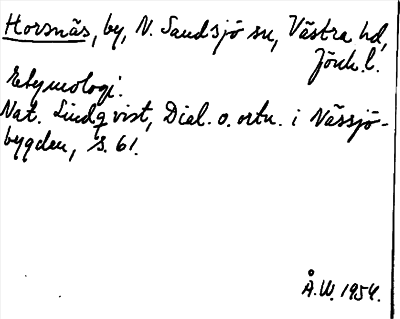 Horsnäs, by, N. Sandsjö sn, Västra hd,
Jönk. l.
Etymologi.
Nat. Lindqvist, Dial. o. ortn. i Nässjö-
bygden, s. 61.
Å.W. 1954.